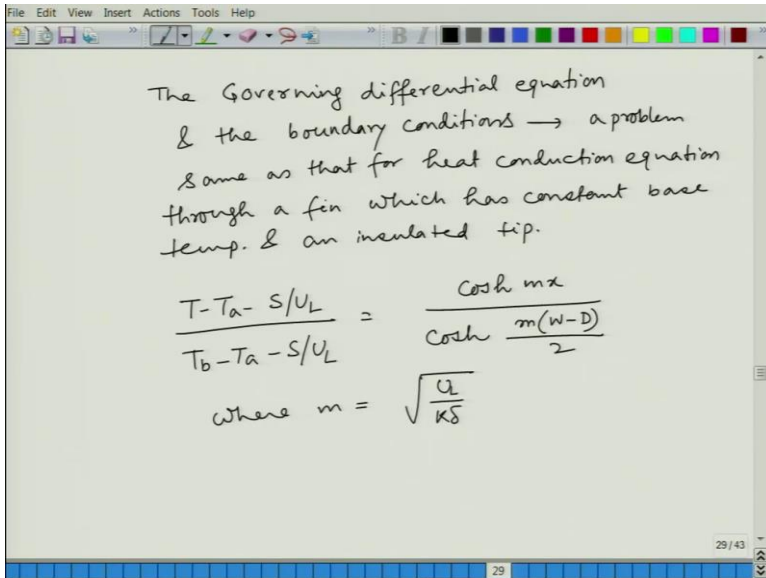 File Edit View Insert Actions Tools Help
B I
The Governing differential equation
& the boundary conditions → a problem
same as that for heat conduction equation
through a fin which has constant base
temp. & an insulated tip.
T-Ta- S/UL / Tb-Ta-S/UL = cosh mx / cosh m(W-D)/2
where m = √UL/Kδ
29/43
29